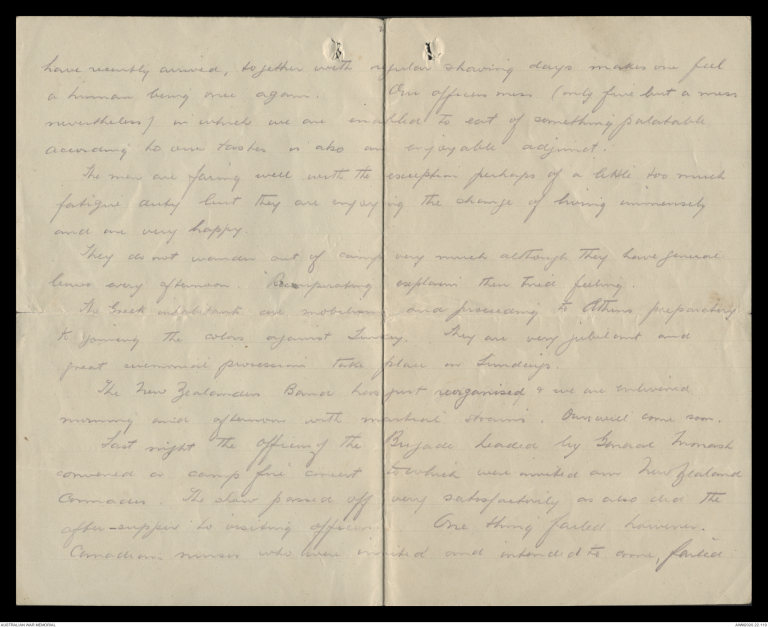 have recently arrived, together with regular shaving days makes one feel
a human being once again. Our officers mess (only five but a mess
nevertheless) in which we are enabled to eat of something palatable
according to our tastes is also an enjoyable adjunct.
The men are faring well with the exception perhaps of a little too much
fatigue duty but they are enjoying the change of living immensely
and are very happy.
They do not wander out of camp very much although they have general
leave every afternoon. Recuperating explains their tired feeling.
The Greek inhabitants are mobilising and proceeding to Athens preparatory
to joining the colors against Turkey. They are very jubilant and
great ceremonial processions take place on Sundays.
The New Zealanders Band has just reorganised & we are enlivened
morning and afternoon with martial strains. Ours will come soon.
Last night the Officers of the Brigade headed by General Monash
convened a camp fire concert to which were invited our New Zealand
Comrades. The show passed off very satisfactorily as also did the
after-supper to visiting officers. One thing failed however.
Canadian nurses who were invited and intended to come, failed
AUSTRALIAN WAR MEMORIAL